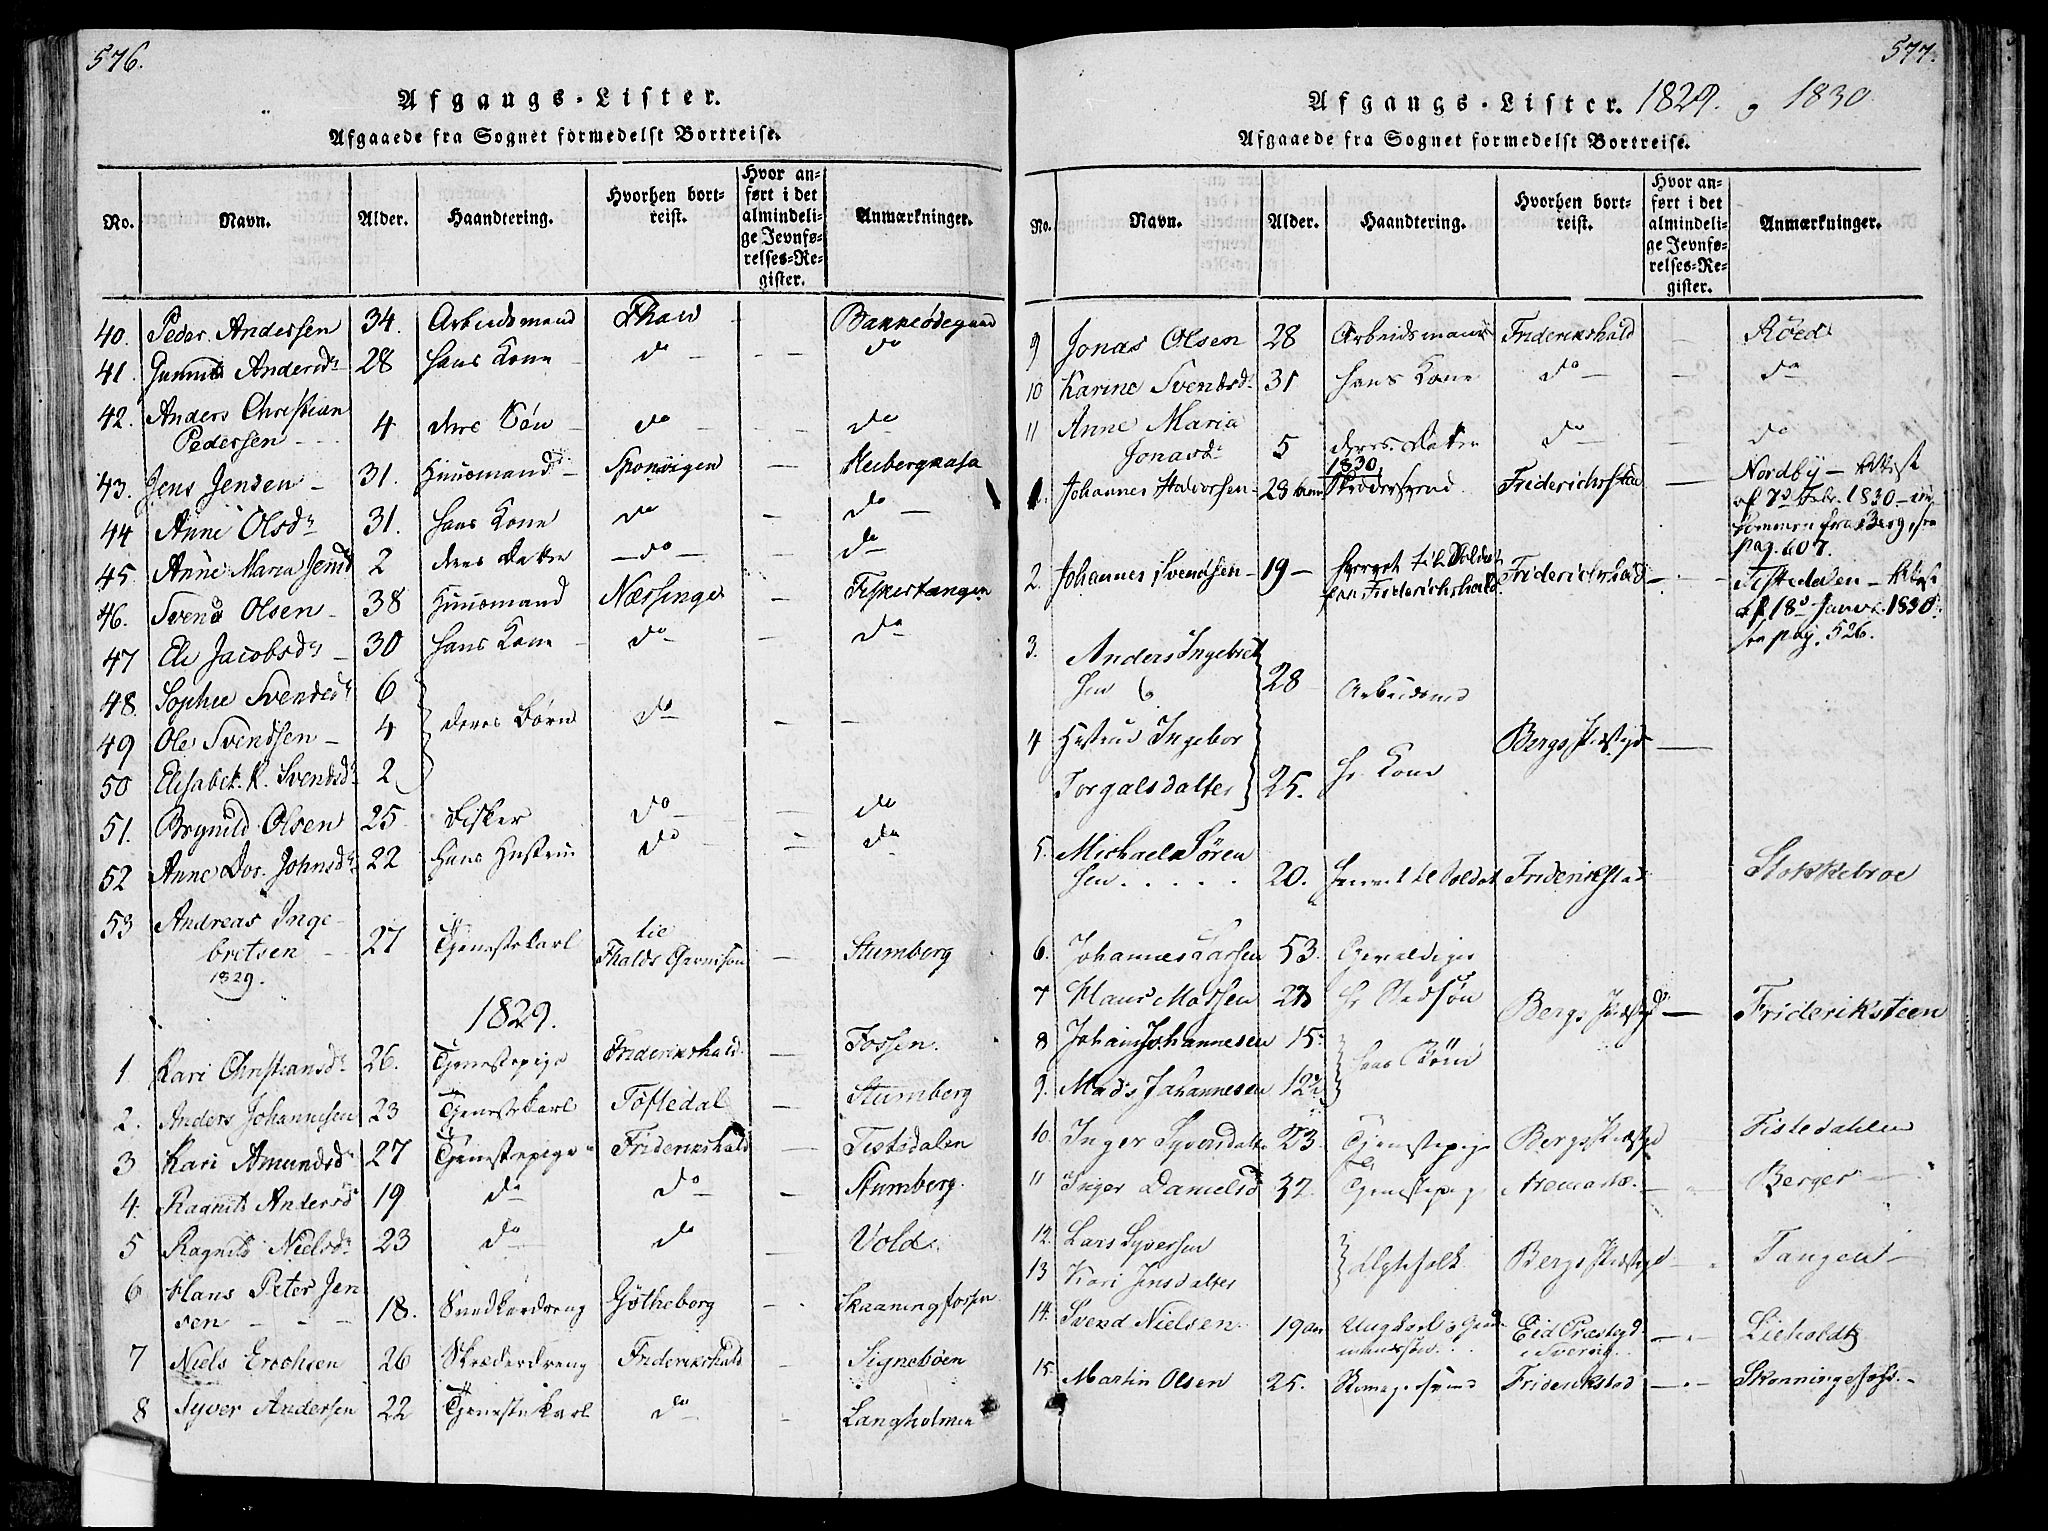 576.
Afgangs-Lister.
Afgaaede fra Sognet formedelst Bortreise.
No. Navn. Alder. Haandtering. Hvorhen bortreist. Hvor anført i det almindelige Jevnførelses-Register. Anmærkninger.
40. Peder Andersen 34. Arbeidsmand Fhald — Bakkeødegaard
41. Gunnild Andersd. 28 hans Kone do — — do
42. Anders Christian
Pedersen - - - 4 deres Søn do — — do
43. Jens Jensen 31. Huusmand Sponvigen — Heibergkasa
44 Anne Olsd. 31. hans Kone do — do
45. Anne Maria Jensd 2 deres Datter —do— — do
46. Svend Olsen 38 Huusmand Næssinge — Fiskertangen
47 Eli Jacobsd. 30 hans Kone do — do
48. Sophie Svendsd. 6
49 Ole Svendsen 4 deres Børn do — —
50 Elisabet. K. Svendsd. 2
51. Brynild Olsen 25 Fisker do — do
52 Anne Dor. Johnsd. 22 hans Hustru do — do
53 Andreas Inge-
britsen 27 Tjenestekarl til Fhalds Garnison — Stumberg
1829.
1829.
1 Kari Christiansd. 26. Tjenestepige Friderikshald — Fossen.
2. Anders Johannesen 23 Tjenestekarl Toftedal — Stumberg
3 Kari Amundsd. 27 Tjenestepige Friderikshald — Tistedalen
4. Ragnild Andersd 19 do do — Stumberg.
5 Ragnild Nielsd. 23 do do — Vold.
6 Hans Peter Jen
sen — — — 18. Snedkerdreng Gøtheborg — Skaaningfossen
7 Niels Erichsen 26 Skræderdreng Friderikshald — Signebøen
8 Syver Andersen 22 Tjenestekarl do - Langholmen
577.
Afgangs-Lister. 1829. og 1830.
Afgaaede fra Sognet formedelst Bortreise.
No. Navn. Alder. Haandtering. Hvorhen bortreist. Hvor anført i det almindelige Jevnførelses-Register. Anmærkninger.
9 Jonas Olsen 28 Arbeidsmand Friderikshald — Røed
10 Karine Svendsd. 31 hans Kone do — do
11 Anne Maria
Jonasd. 5 deres Datter do — do
1830
1. Johannes Halvorsen 28 Skrædersvend Friderichstad — Nordby — Attest
af 7d Febr. 1830 —
kommen fra Berg, see
pag. 607.
2. Johannes Svendsen 19 — hvervet til Soldat
fra Friderichshald. Friderichshald — Tistedalen — Attest
af 18d Januar 1830.
see pag. 526.
3. Anders Ingebret
sen og 28 Arbeidsmd
4 Hustrue Ingebor
Torgalsdatter 25. hs Kone Bergs Præstgd —
5. Michael Søren
sen . . . . . 20. hvervet til Soldat Friderikstad Stokkebroe
6. Johannes Larsen 53. Gevaldiger
7 Hans Madsen 23 hs Stedsøn Bergs Præstgd — Frideriksteen
8 Johan Johannesen 15
9. Mads Johannesen 12½ hans Børn
10. Inger Syversdatter 23. Tjenestepige Bergs Præstgd Tistedahlen
11 Inger Danielsd 32. Tjenestepig Aremark. — Berger
12. Lars Syversen
13 Kari Jensdatter Bergs Præstgd — Tangen —
14. Svend Nielsen 19 aar Ungkarl, Gaard-
mandssøn Eid Præstgd.
i Sverig. — Lieholdt
15. Martin Olsen 25. Skomagersvend Friderikstad — Skonningsfoss.